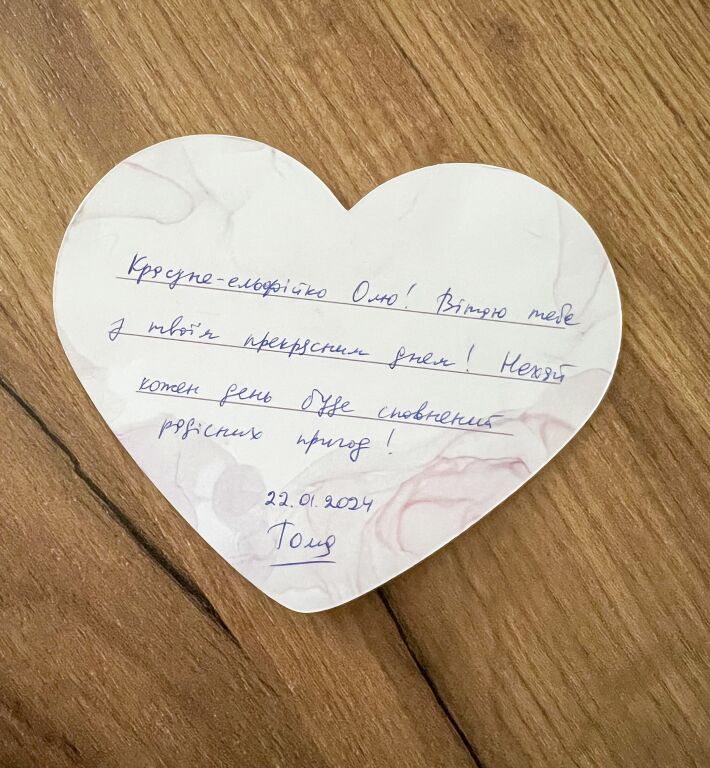 Красуне-ельфійко Олю! Вітаю тебе
з твоїм прекрасним днем! Нехай
кожен день буде сповнений
радісних пригод!
22.01.2024
Тома